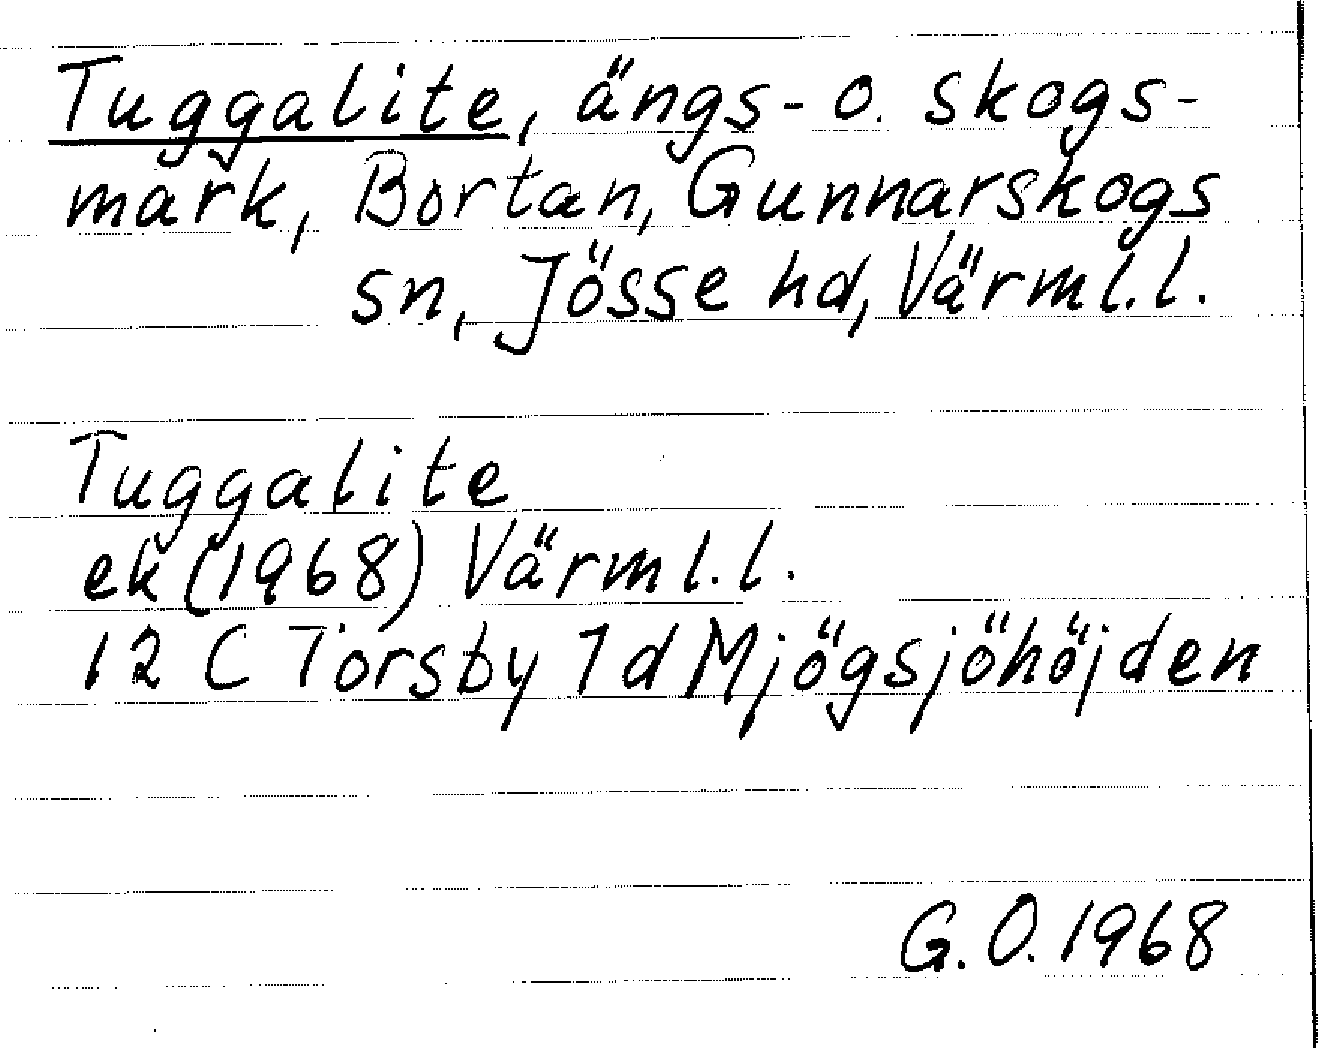 Tuggalite, ängs- o. skogs-
mark, Bortan, Gunnarskogs
sn, Jösse hd, Värml.l.
Tuggalite
ek (1968) Värml.l.
12 C Torsby 1d Mjögsjöhöjden
G.O. 1968